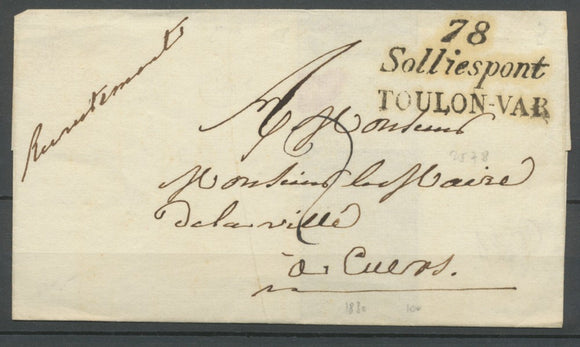 78
Solliespont
TOULON-VAR
Recrutement
A Monsieur
Monsieur le Maire
de la ville
à Cuers.
1830